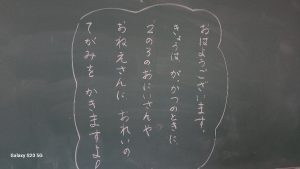 おはようございます。
きょうは がっかつのときに、
2の3のおにいさんや
おねえさんに おれいの
てがみを かきますよ♪
Galaxy S23 5G